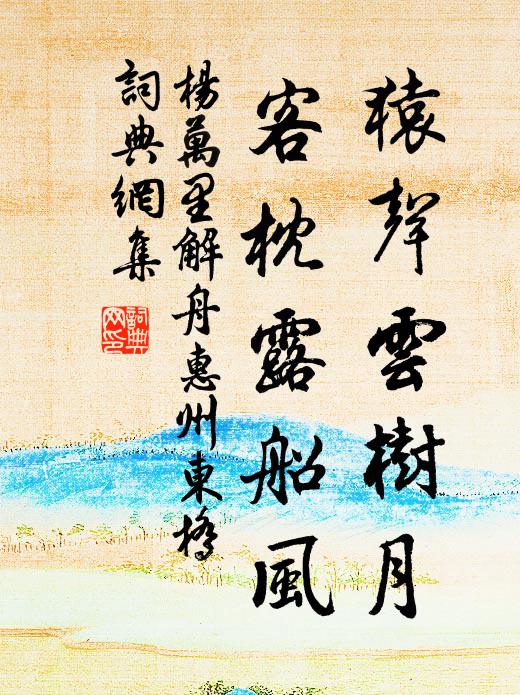 猿聲雲樹月
客枕露船風
楊萬里解舟惠州東橋
詞典網集
詞典
网印